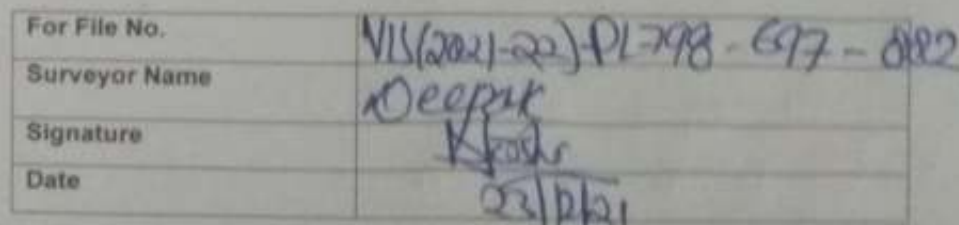 For File No. VIS(2021-22)-PL-798-697-
Surveyor Name Deepak
Signature
Date 23/12/21